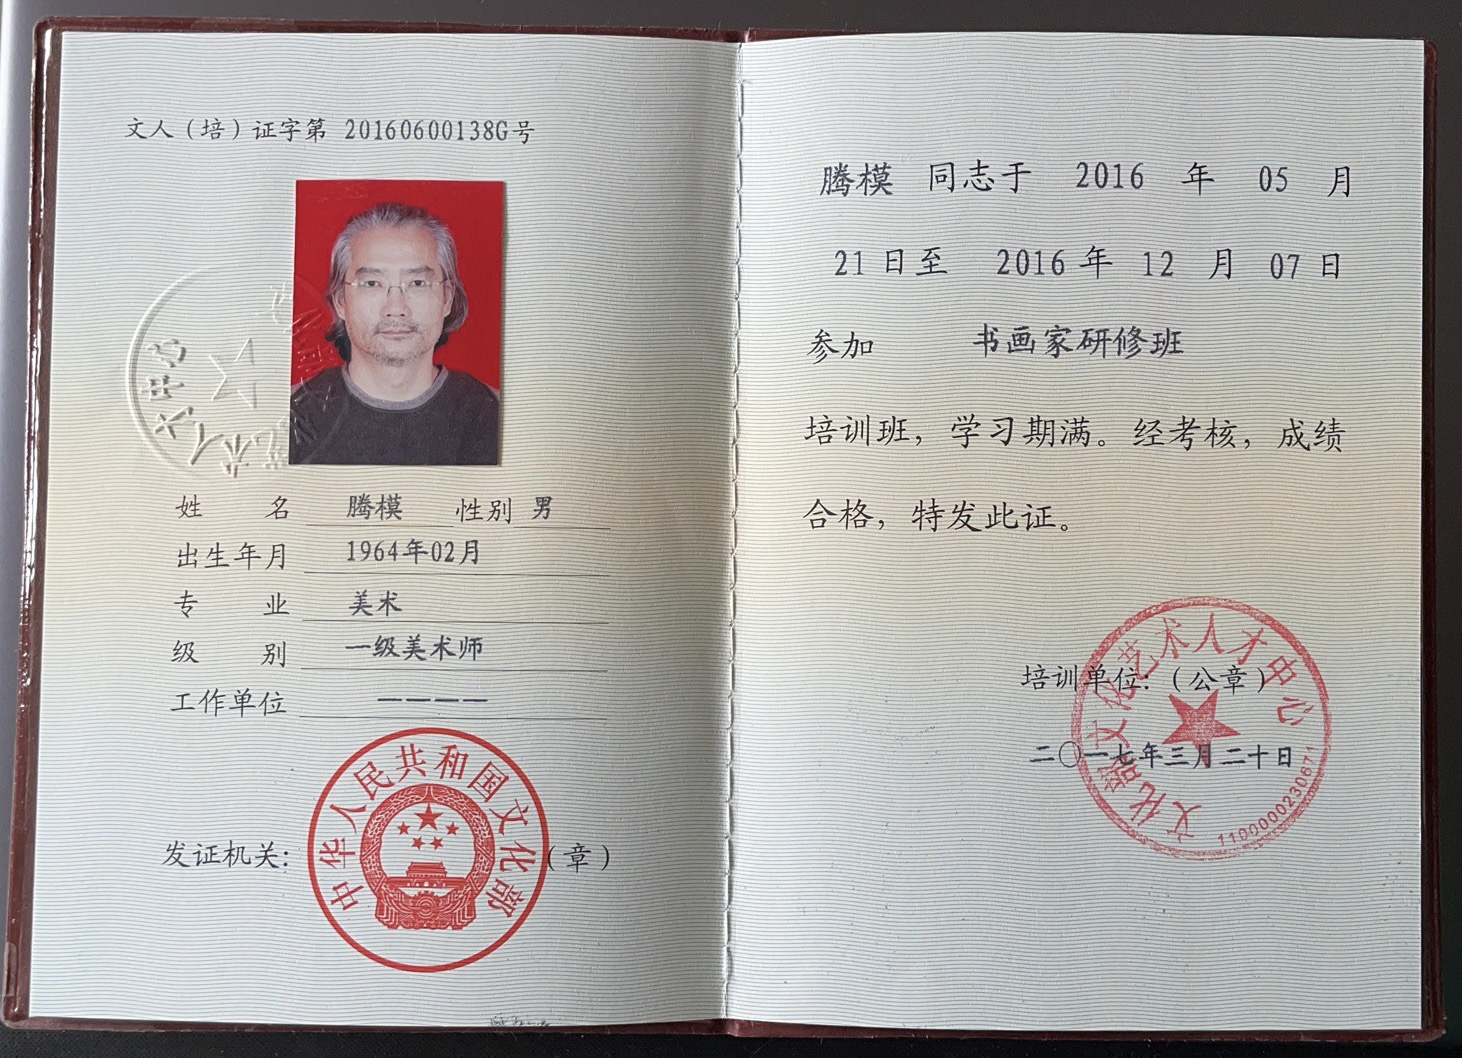 文人（培）证字第 20160600138G号
姓名 腾模 性别 男
出生年月 1964年02月
专业 美术
级别 一级美术师
工作单位 ————
发证机关：（章）
中华人民共和国文化部
腾模 同志于 2016 年 05 月
21 日至 2016 年 12 月 07 日
参加 书画家研修班
培训班，学习期满。经考核，成绩
合格，特发此证。
培训单位：（公章）
二〇一七年三月二十日
文化部文化艺术人才中心
1100000230671